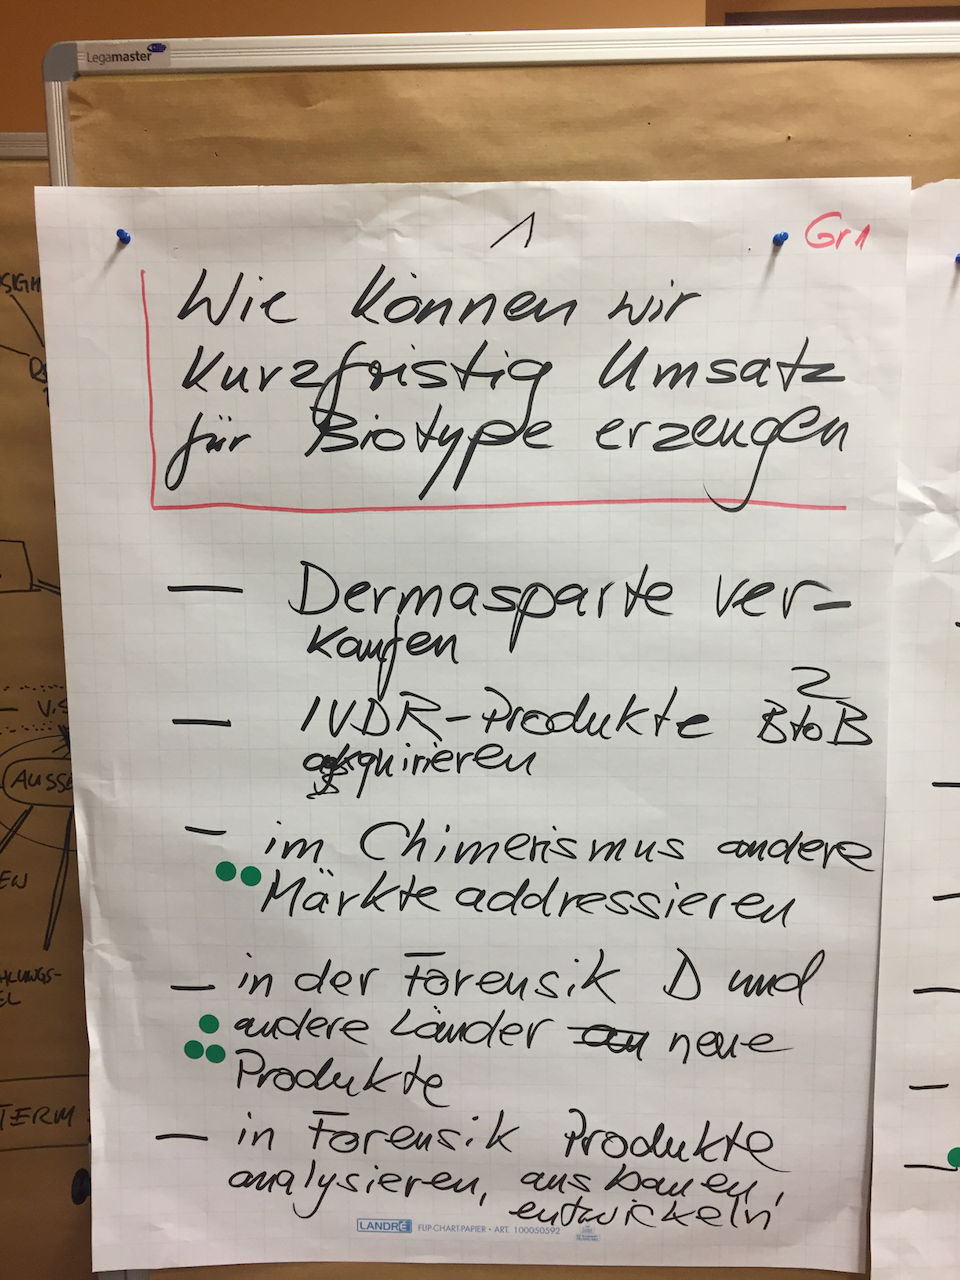 Legamaster
1
Gr1
Wie können wir
kurzfristig Umsatz
für Biotype erzeugen
— Dermasparte ver-
kaufen
— IVDR-Produkte B2toB
akquirieren
— im Chimerismus andere
Märkte addressieren
— in der Forensik D und
andere Länder neue
Produkte
— in Forensik Produkte
analysieren, ausbauen,
entwickeln
LANDRÉ FLIP-CHART-PAPIER • ART. 100050592
AUSSE
TERM